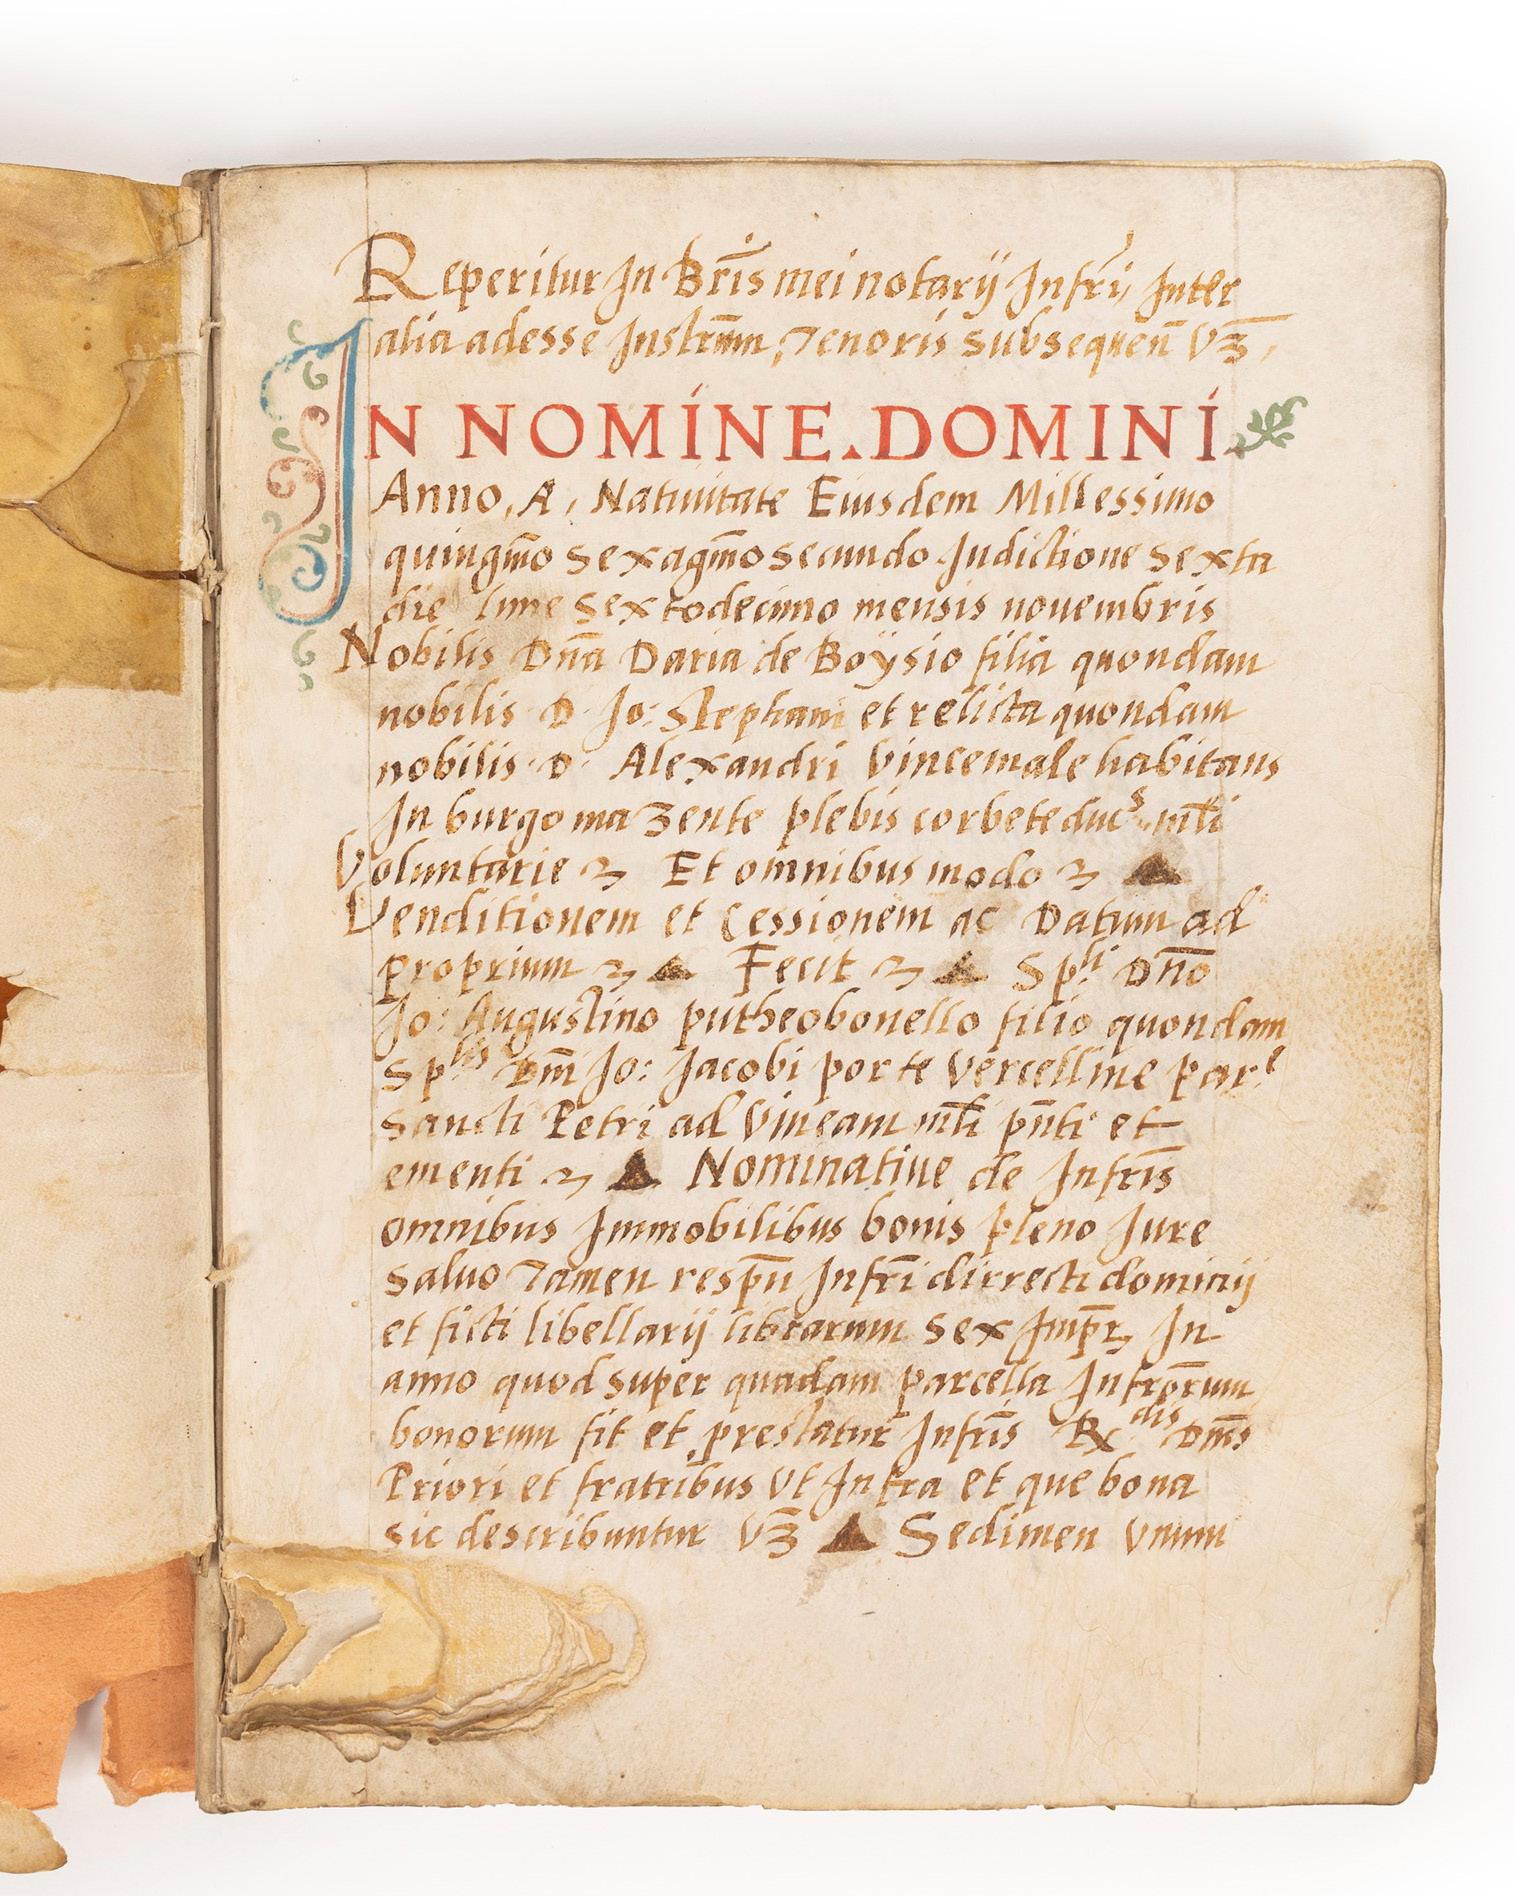 Reperitur In Br̄is mei notarij Infr̄i, Inter
alia adesse Instrūm, Tenoris subsequen̄ Vʒ,
IN NOMINE.DOMINI
Anno, A, Natiuitate Eiusdem Millessimo
quingm̄o sexagm̄o secundo Indictione sexta
die lune sextodecimo mensis nouembris
Nobilis Dn̄a Daria de Boÿsio filia quondam
nobilis D. Jo: Stephani et relicta quondam
nobilis D. Alexandri Vincemale habitans
In burgo maʒente plebis corbete duc.s ml̄i
Voluntarie ꝫ Et omnibus modo ꝫ
Venditionem et Cessionem ac Datum ad
proprium ꝫ Fecit ꝫ Sp.li Dn̄o
Jo: Augustino putheobonello filio quondam
Sp.lis Dm̄ Jo: Jacobi porte Vercelline par.e
Sancti Petri ad Vineam ml̄i pn̄ti et
ementi ꝫ Nominatiue de Infr̄is
omnibus Immobilibus bonis pleno Jure
saluo Tamen resp̄u Infr̄i dirrecti dominij
et ficti libellarij librarum sex Imp̄r, In
anno quod super quadam parcella Infr̄orum
bonorum fit et prestatur Infr̄is Rx.dis Dm̄s
Priori et fratribus Vt Infra et que bona
sic describuntur Vʒ Sedimen Vnum